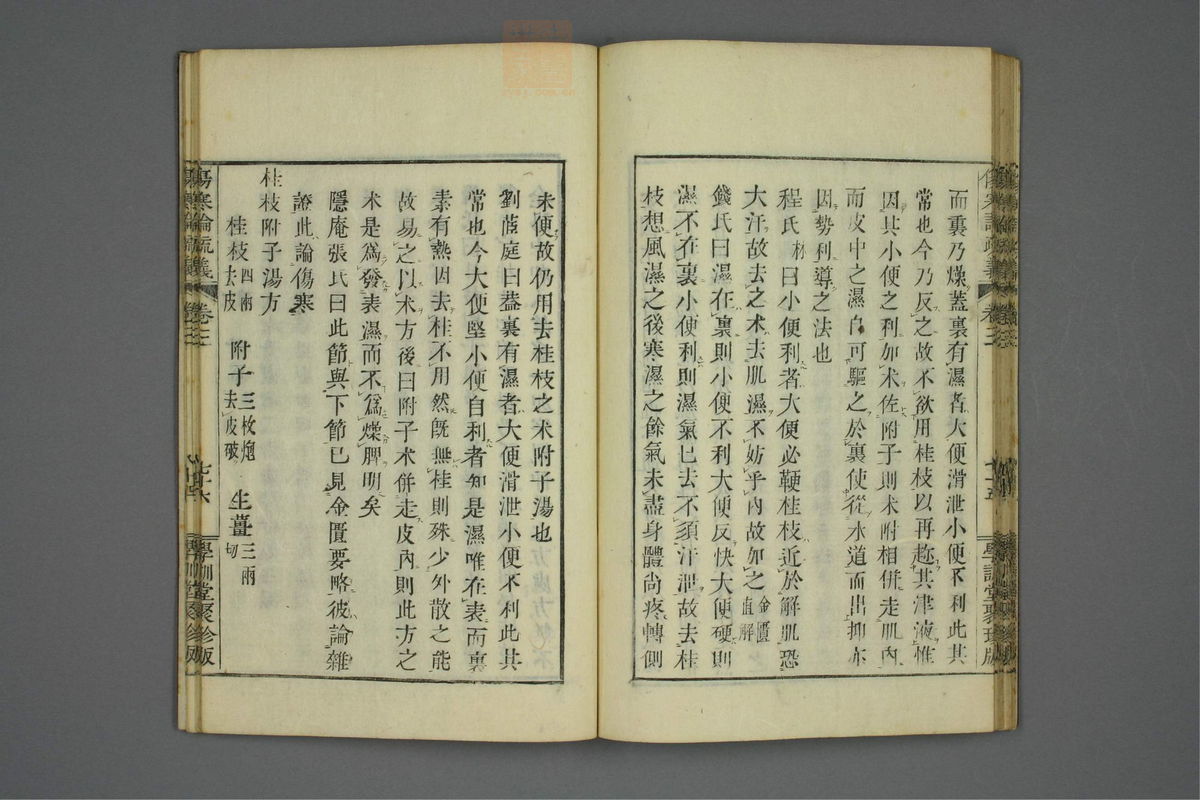 而裏乃燥蓋裏有濕者大便滑泄小便不利此其
常也今乃反之故不欲用桂枝以再趂其津液惟
因其小便之利如朮佐附子則朮附相併走肌內
而皮中之濕自可驅之於裏使從水道而出抑亦
因勢利導之法也
程氏林曰小便利者大便必鞕桂枝近於解肌恐
大汗故去之朮去肌濕不妨乎內故加之金匱直解
錢氏曰濕在裏則小便不利大便反快大便硬則
濕不在裏小便利則濕氣已去不須汗泄故去桂
枝想風濕之後寒濕之餘氣未盡身體尚疼轉側
未便故仍用去桂枝之朮附子湯也
劉茝庭曰蓋裏有濕者大便滑泄小便不利此其
常也今大便堅小便自利者知是濕唯在表而裏
素有熱因去桂不用然旣無桂則殊少外散之能
故易之以朮方後曰附子朮併走皮內則此方之
朮是爲發表濕而不爲燥脾明矣
隱庵張氏曰此節與下節已見金匱要略彼論雜
證此論傷寒
桂枝附子湯方
桂枝四兩去皮 附子三枚炮去皮破 生薑三兩切
傷寒論疏義 卷三 學訓堂聚珍版